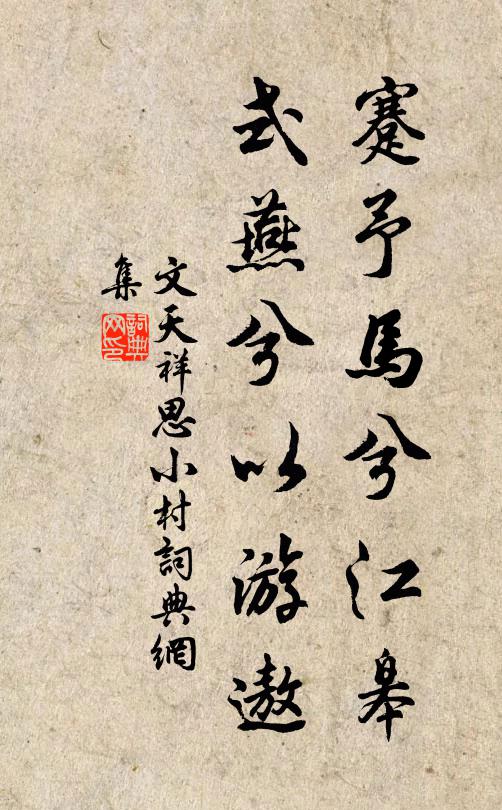 蹇予馬兮江皋
式燕兮以游遨
文天祥思小村詞典網
集
詞典
网印